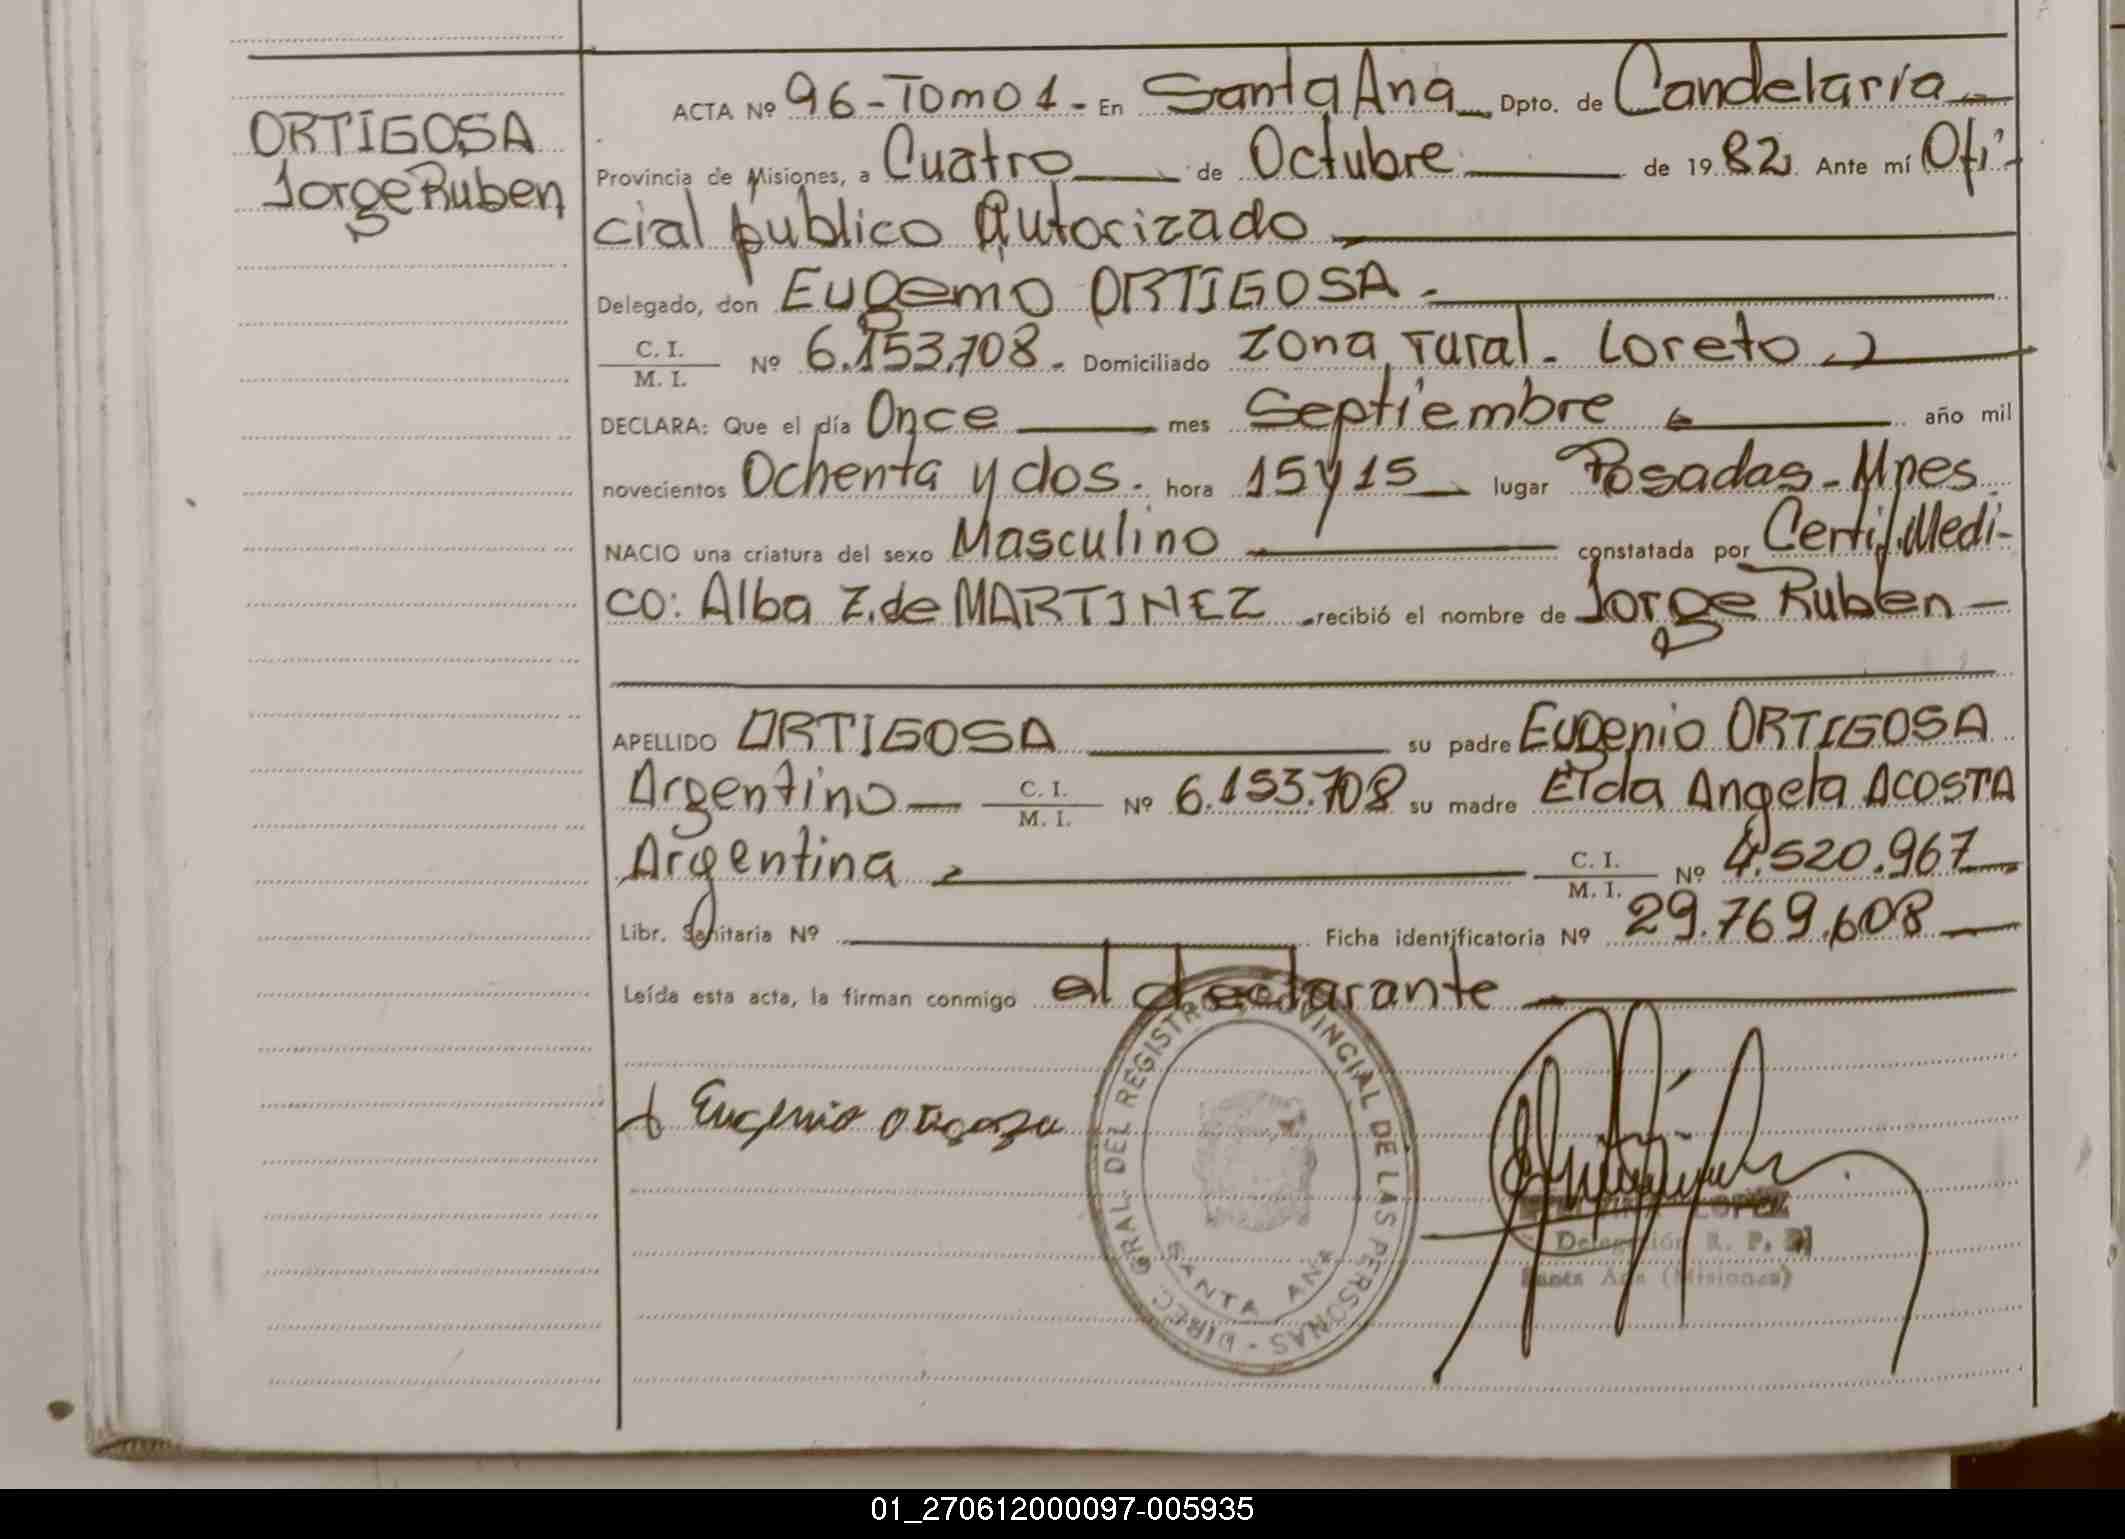 ORTIGOSA
Jorge Ruben
ACTA Nº 96-Tomo 1- En Santa Ana Dpto. de Candelaria
Provincia de Misiones, a Cuatro de Octubre de 1982 Ante mí Ofi-
cial público Autorizado
Delegado, don Eugenio ORTIGOSA.
C. I.
M. I. Nº 6.153.708. Domiciliado zona rural. Loreto
DECLARA: Que el día Once mes Septiembre año mil
novecientos Ochenta y dos. hora 15 y 15 lugar Posadas-Mnes.
NACIO una criatura del sexo Masculino constatada por Certif. Medi-
co: Alba Z. de MARTINEZ recibió el nombre de Jorge Ruben
APELLIDO ORTIGOSA su padre Eugenio ORTIGOSA
Argentino C. I. M. I. Nº 6.153.708 su madre Elda Angela ACOSTA
Argentina C. I. M. I. Nº 4.520.967
Libr. Sanitaria Nº Ficha identificatoria Nº 29.769.608
Leída esta acta, la firman conmigo el declarante
Eugenio
DIREC. GRAL. DEL REGISTRO PROVINCIAL DE LAS PERSONAS -
SANTA ANA
LOPEZ
Delegación R. P. P.
Santa Ana (Misiones)
01_270612000097-005935